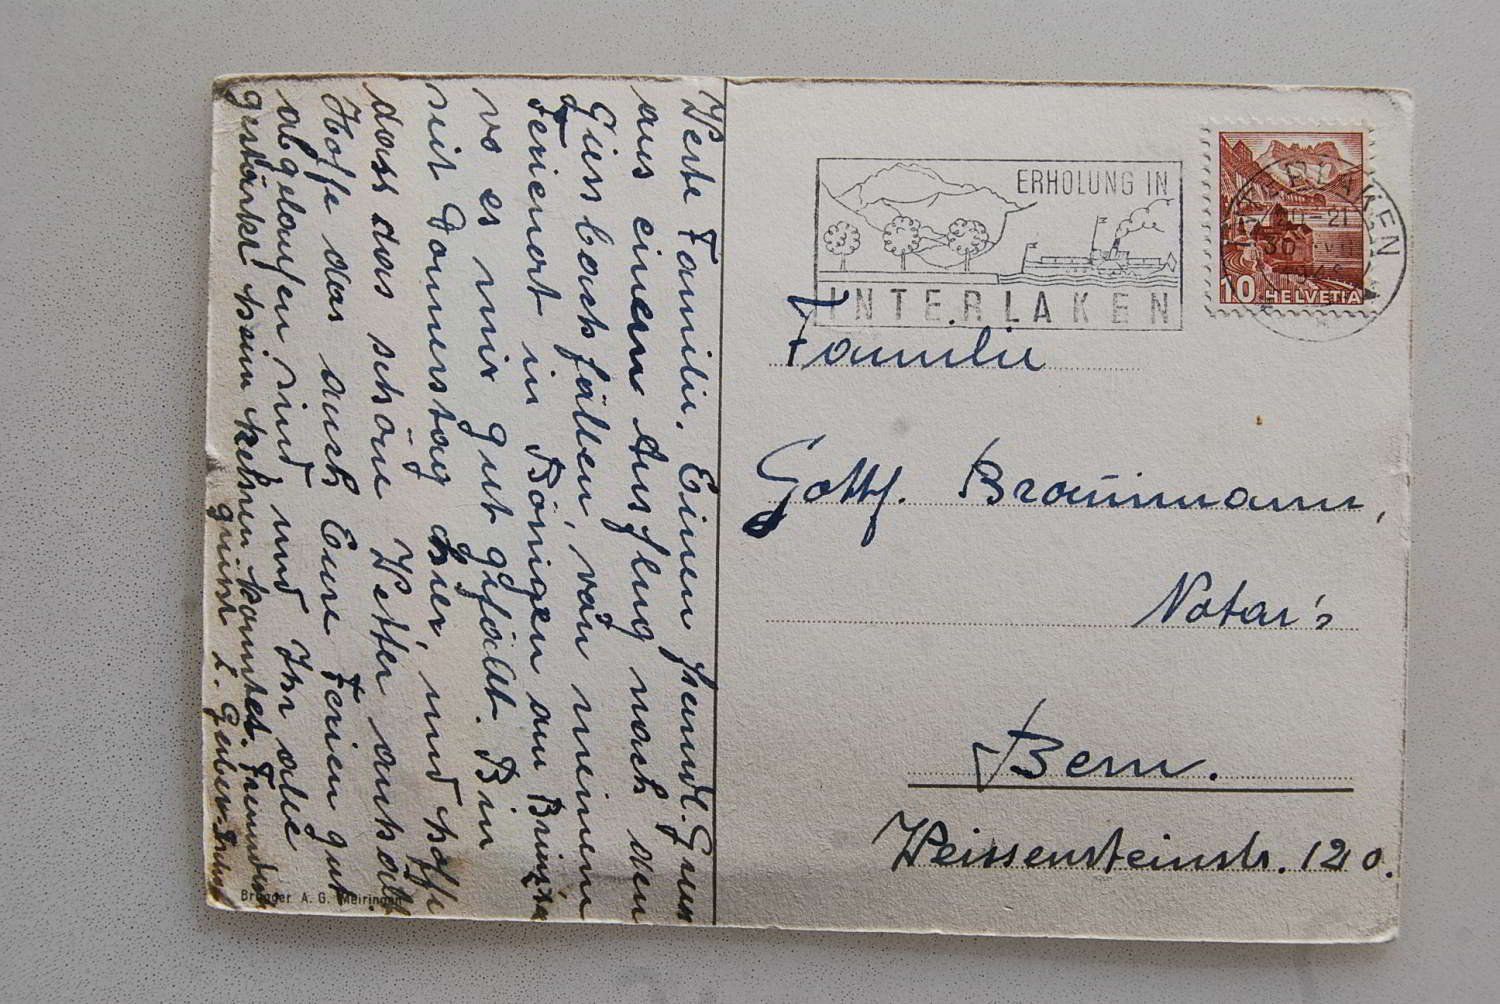 Werte Familie. Einen freundl. Gruss
aus einem Ausflug nach den
Giessbachfällen, von meinem
Ferienort in Bönigen am Brienzer
wo es mir gut gefällt. Bin
seit Donnerstag hier, und hoffe
dass das schöne Wetter anhält
Hoffe das auch Eure Ferien gut
abgelaufen sind, und Ihr alle
gestärkt heim kehren konntet.
grüsst L.
Brügger A. G. Meiringen
ERHOLUNG IN
INTERLAKEN
INTERLAKEN
10 HELVETIA
Familie
Gottf. Braunmann,
Notar's
Bern.
Weissensteinstr. 120.